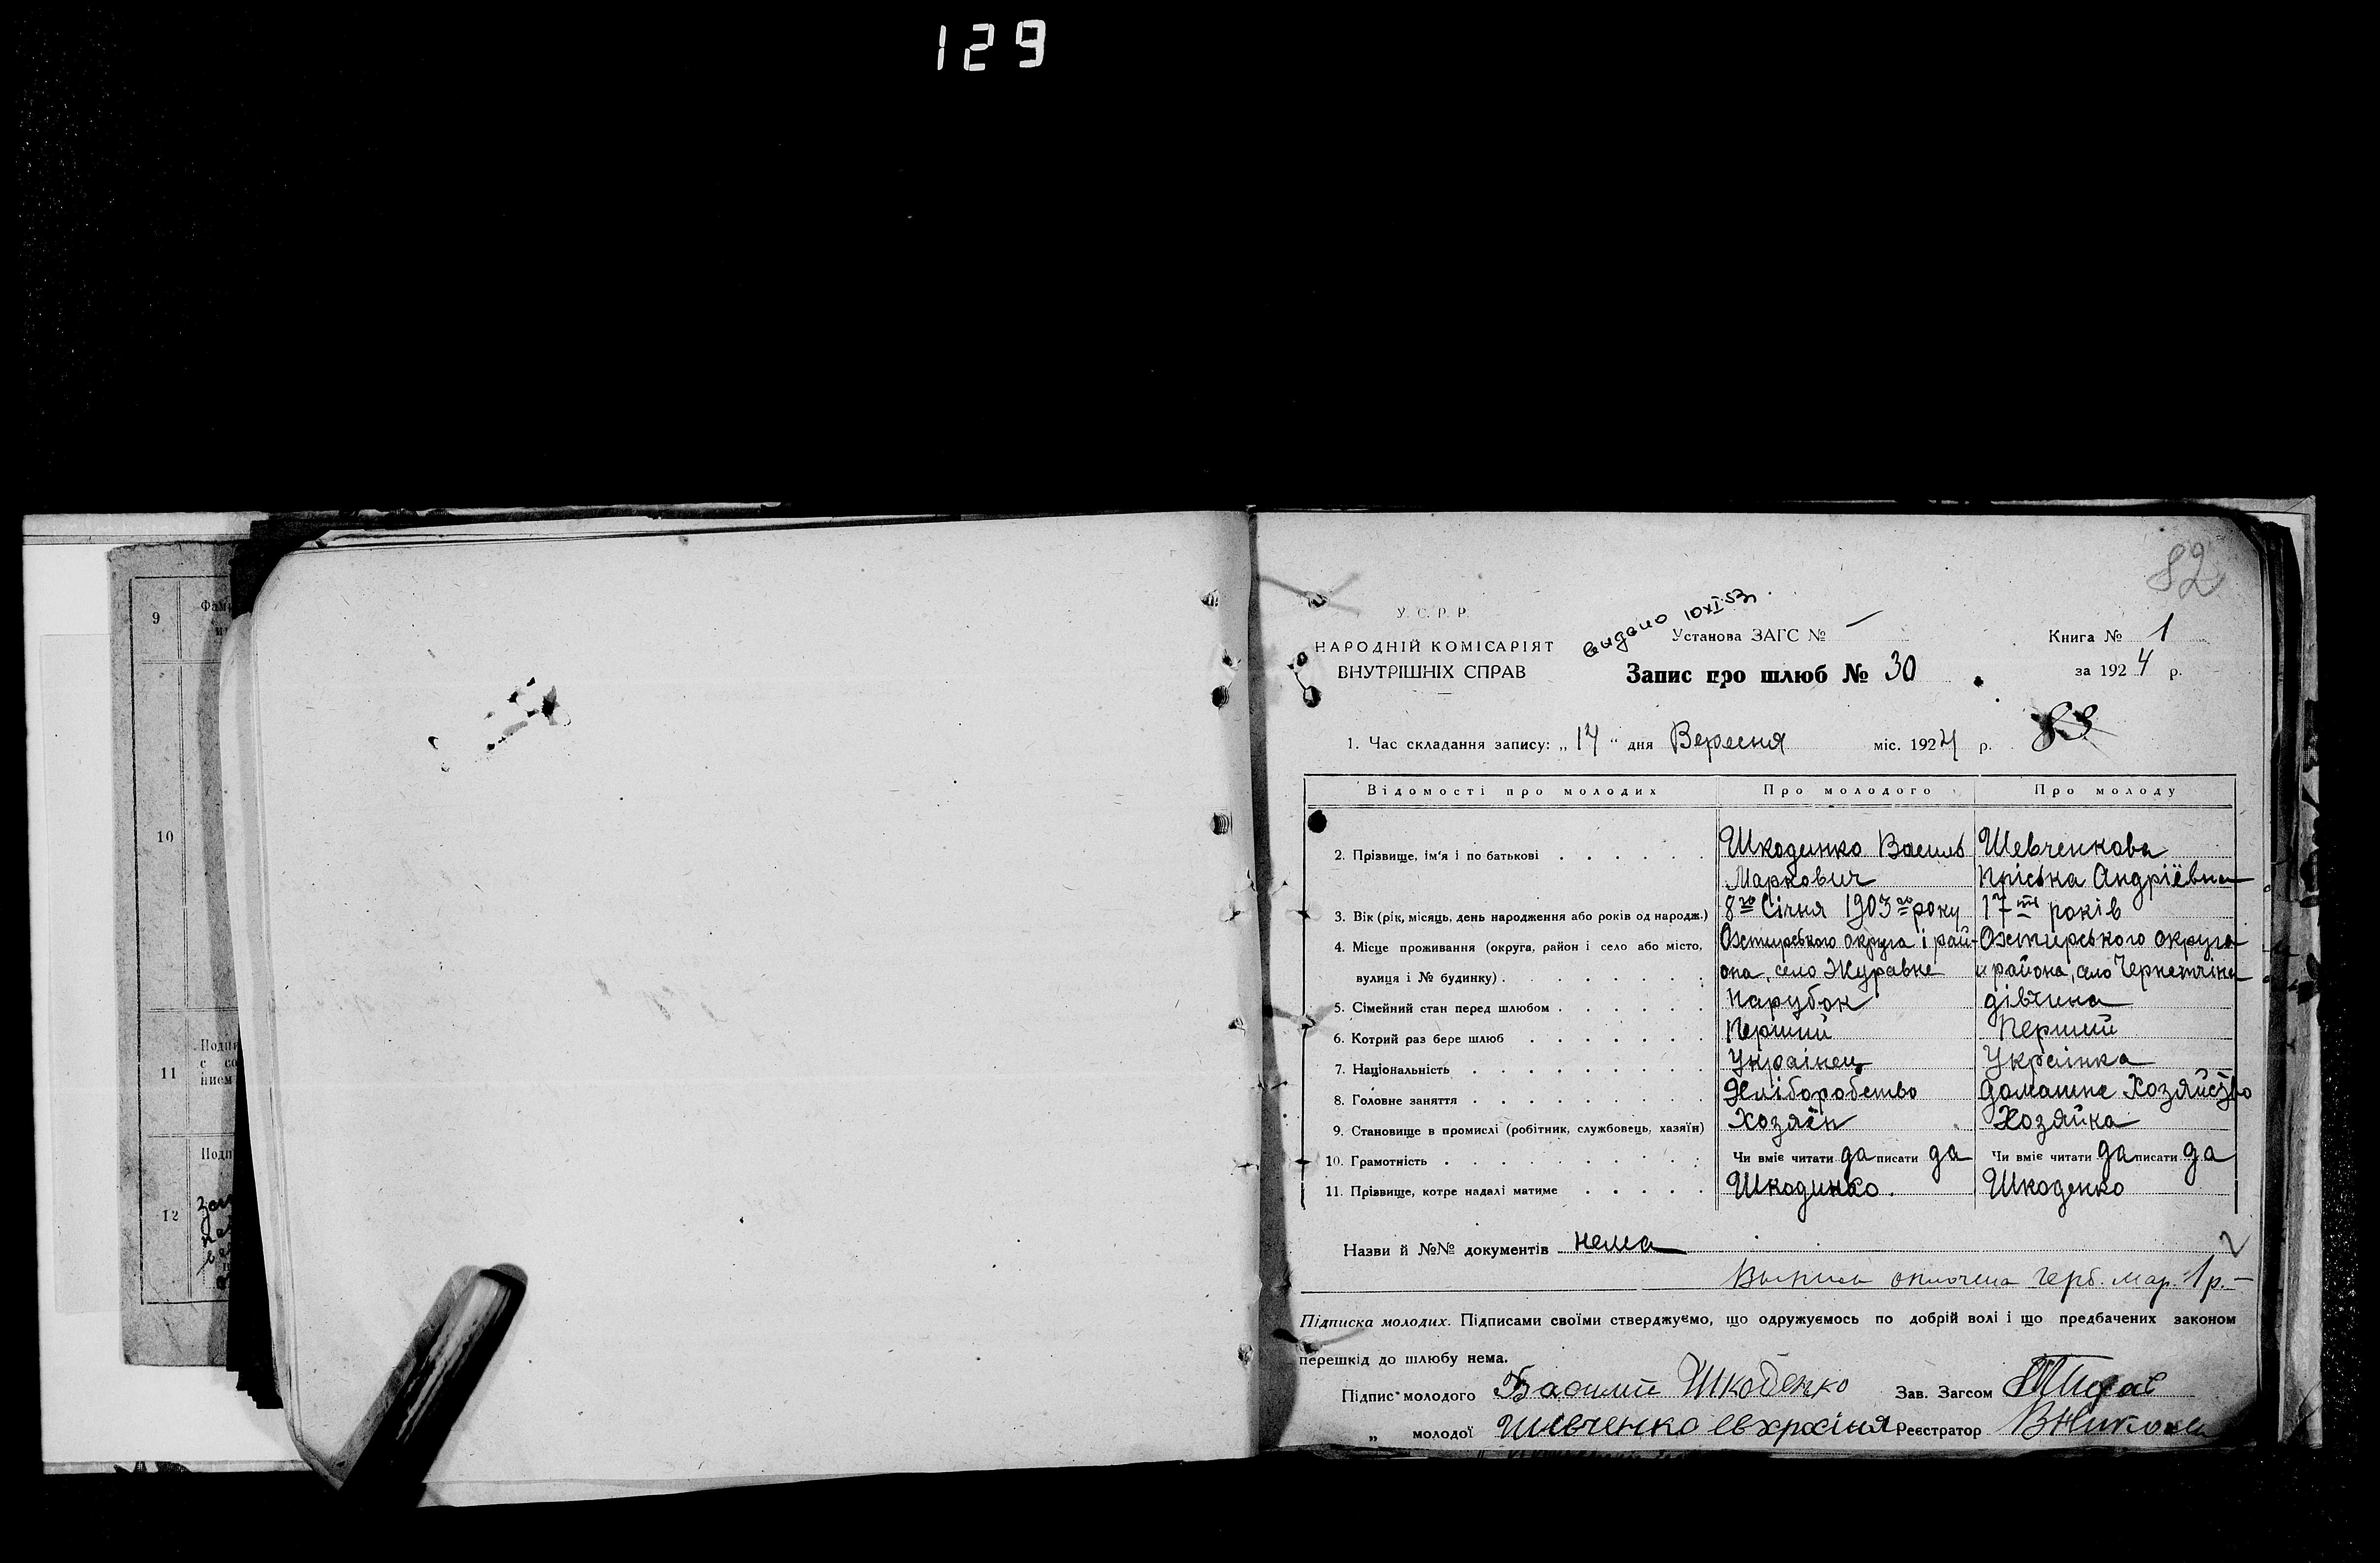 129
9
10
11
12
82
У. С. Р. Р.
НАРОДНІЙ КОМІСАРІЯТ
ВНУТРІШНІХ СПРАВ
видано 10 XI 53
Установа ЗАГС № —
Запис про шлюб № 30
Книга № 1
за 1924 р.
83
1. Час складання запису: „14" дня Вересня міс. 1924 р.
Відомості про молодих Про молодого Про молоду
2. Прізвище, ім'я і по батькові Шкодинко Василь Шевченкова
Маркович Пріська Андріївна
3. Вік (рік, місяць, день народження або років од народж.) 8го Січня 1903го року 17ти років
4. Місце проживання (округа, район і село або місто, Охтирського округа і рай- Охтирського округа
вулиця і № будинку) она, село Журавне и района, село Чернетчина
5. Сімейний стан перед шлюбом Парубок дівчина
6. Котрий раз бере шлюб Перший Перший
7. Національність Українец Українка
8. Головне заняття Хліборобство домашне Хозяйство
9. Становище в промислі (робітник, службовець, хазяїн) Хозяїн Хозяйка
10. Грамотність Чи вміє читати да писати да Чи вміє читати да писати да
11. Прізвище, котре надалі матиме Шкодинко. Шкоденко
Назви й №№ документів нема
2
Выпись оплочена герб. мар. 1 р. —
Підписка молодих. Підписами своїми стверджуємо, що одружуємось по добрій волі і що предбачених законом
перешкід до шлюбу нема.
Підпис молодого Василий Шкоденко Зав. Загсом
„ молодої Шевченко Евхросіния Реєстратор